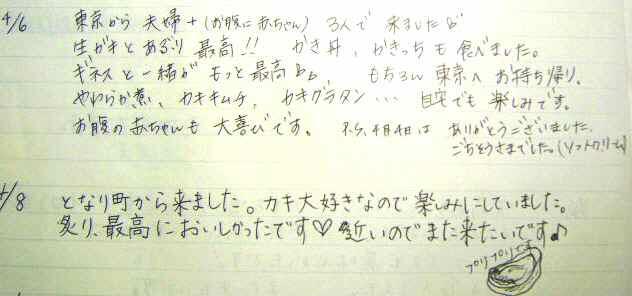 4/6 東京から 夫婦+(お腹に赤ちゃん) 3人で 来ました
生ガキとあぶり 最高!! かき丼、かきっちも 食べました。
ギネスと一緒が もっと最高 もちろん 東京へ お持ち帰り。
やわらか煮、カキキムチ、カキグラタン… 自宅でも 楽しみです。
お腹の赤ちゃんも 大喜びです。 4月4日は ありがとうございました。
ごちそうさまでした。(ソフトクリーム)
4/8 となり町から来ました。カキ大好きなので楽しみにしていました。
炙り、最高においしかったです♡ 近いのでまた来たいです♪
プリプリです